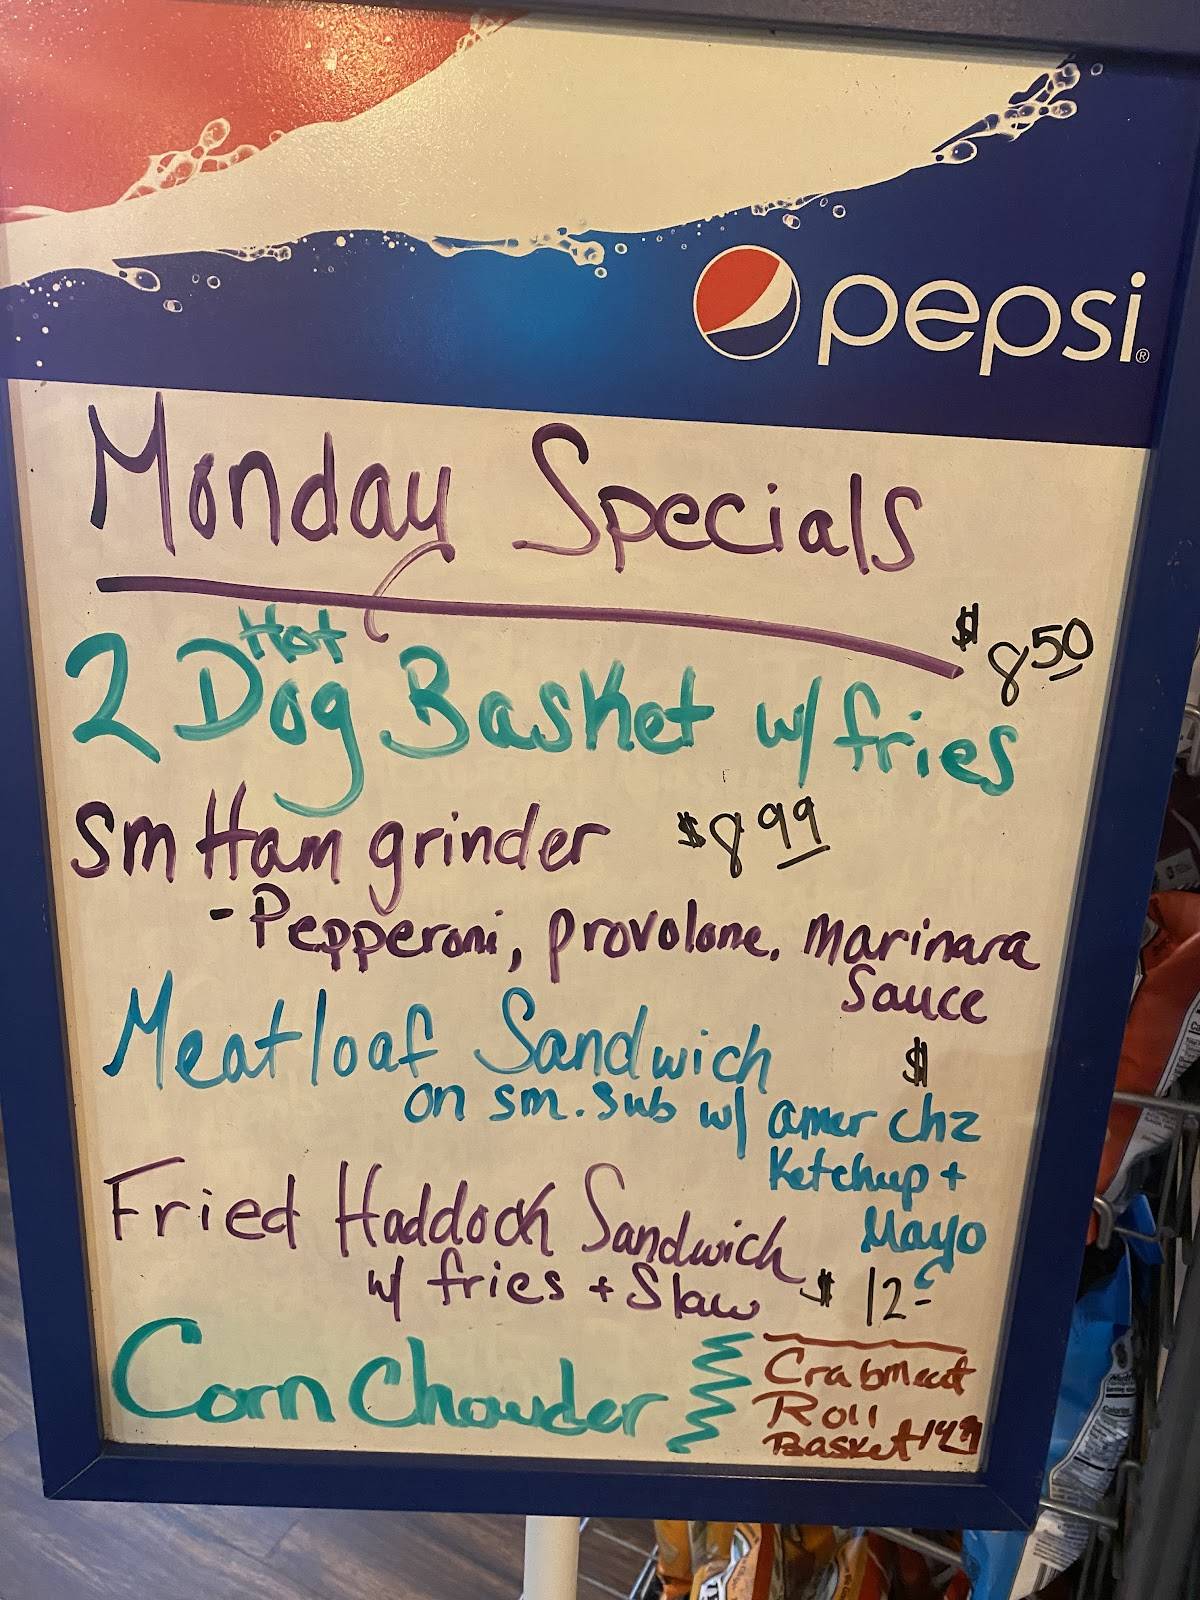 pepsi®
Monday Specials
$8.50
2 Hot Dog Basket w/ fries
Sm Ham grinder $8.99
- Pepperoni, provolone, marinara
Sauce
Meatloaf Sandwich $
on sm. sub w/ amer chz
Ketchup +
Mayo
Fried Haddock Sandwich
w/ fries + Slaw $12-
Corn Chowder
Crabmeat
Roll
Basket